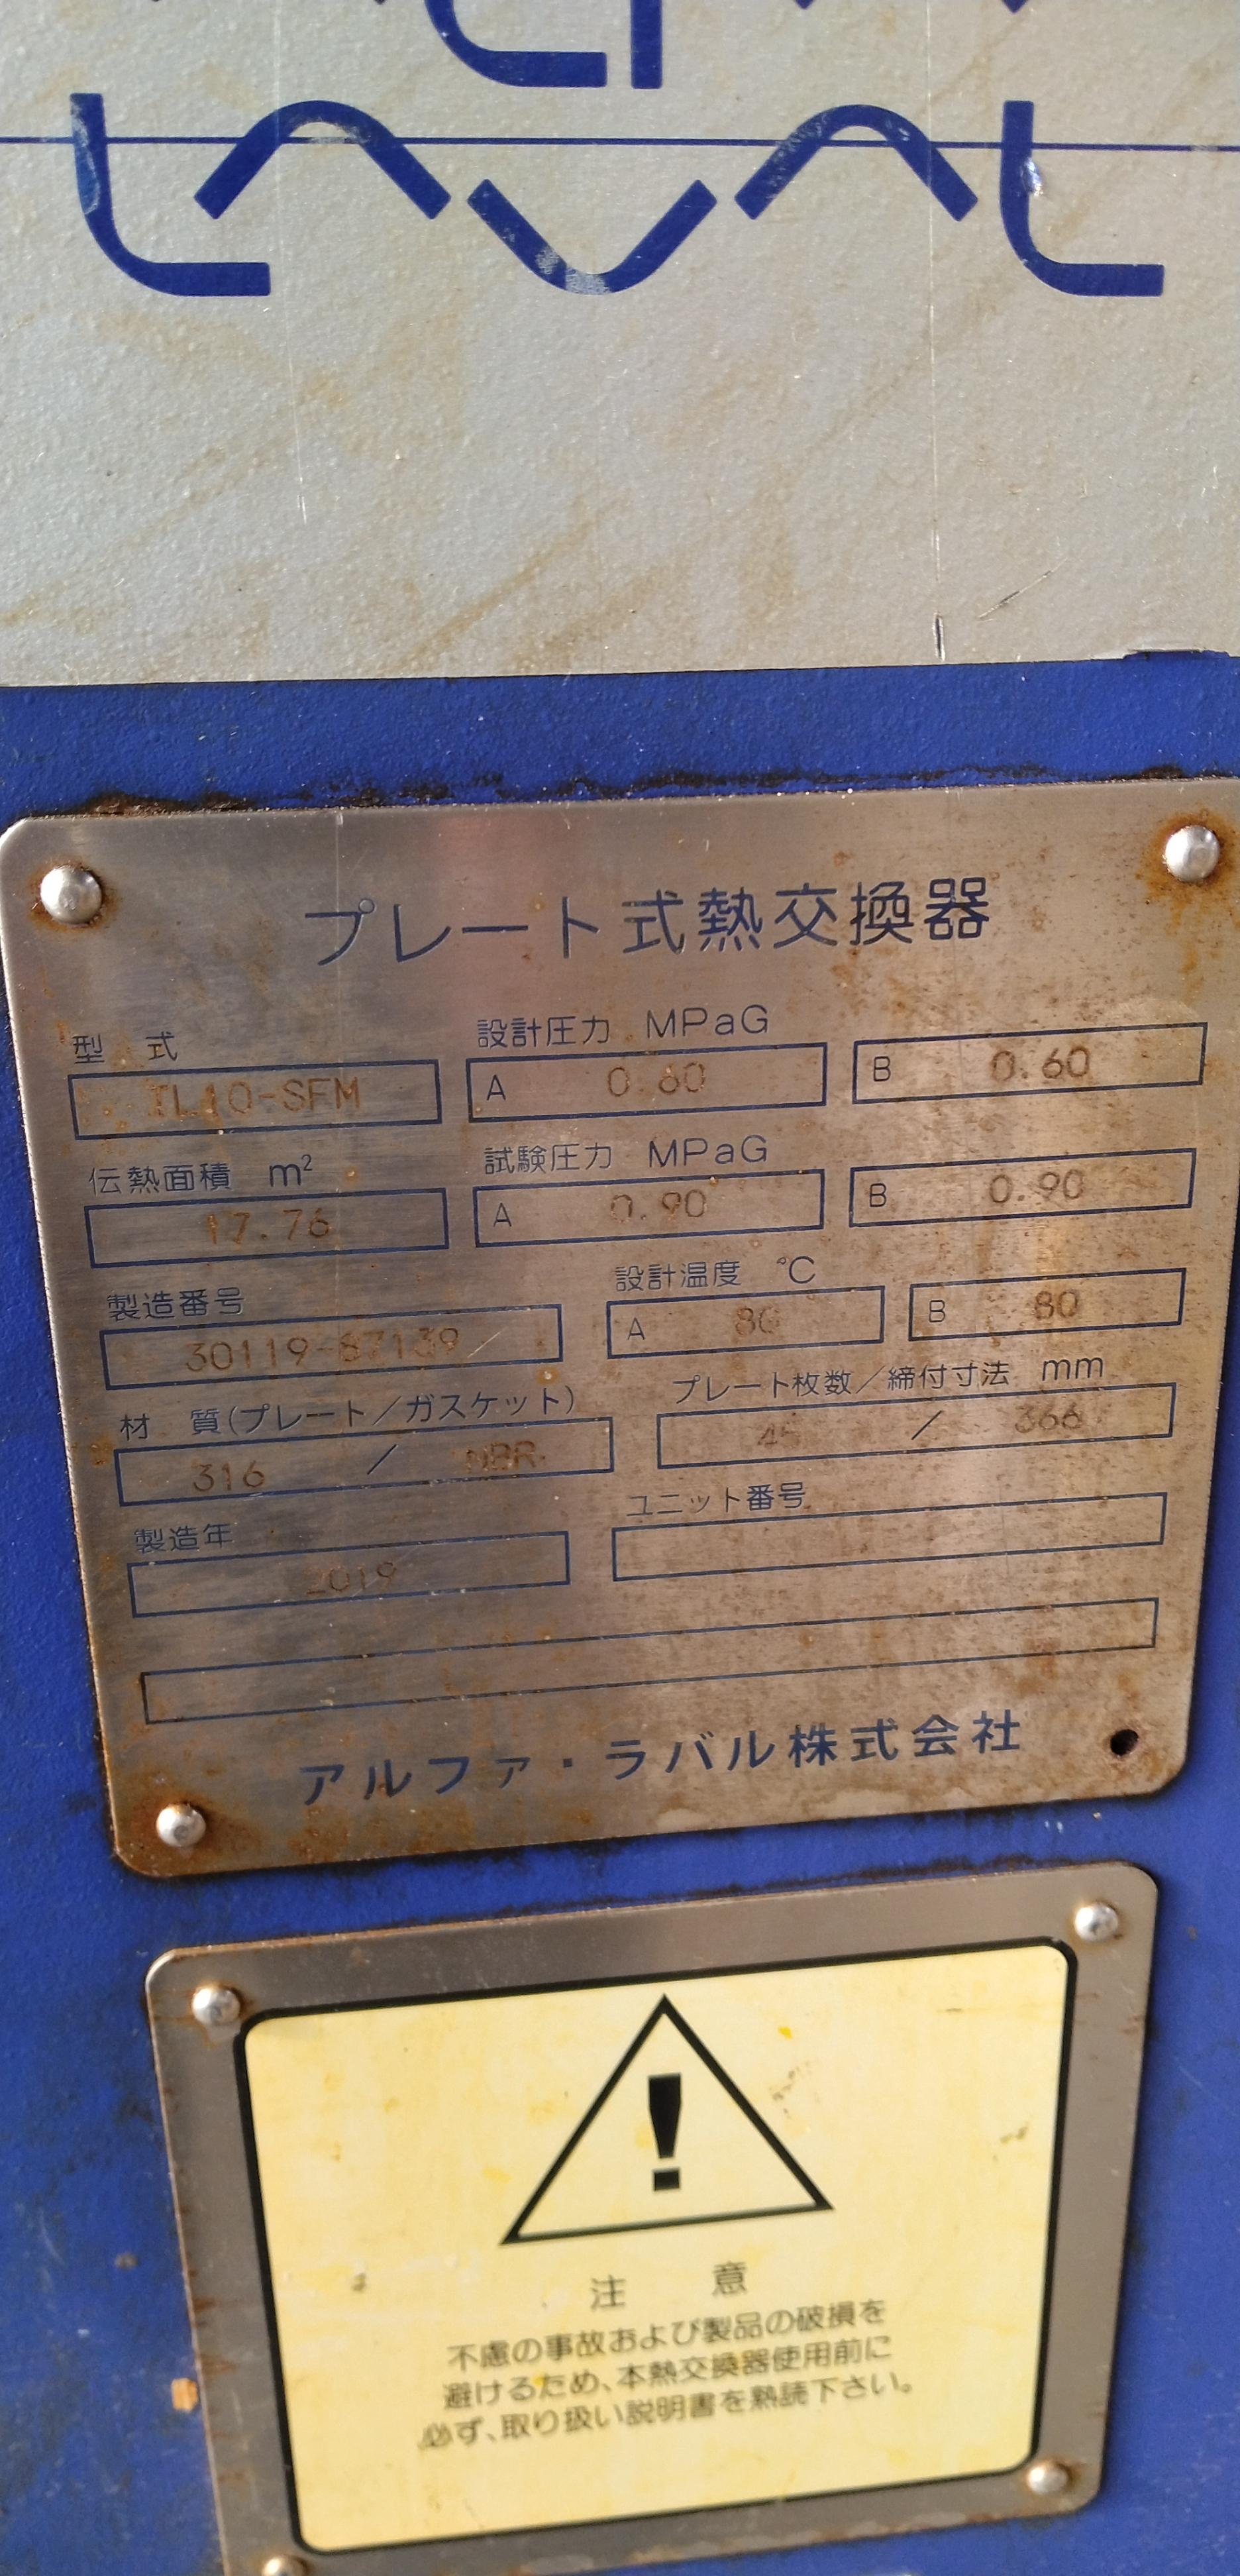 LAVAL
プレート式熱交換器
型 式
TL10-SFM
設計圧力 MPaG
A 0.60
B 0.60
伝熱面積 m²
17.76
試験圧力 MPaG
A 0.90
B 0.90
製造番号
30119-87139
設計温度 °C
A 80
B 80
材 質(プレート/ガスケット)
316 / NBR
プレート枚数/締付寸法 mm
/ 366
製造年
2019
ユニット番号
アルファ・ラバル株式会社
注 意
不慮の事故および製品の破損を
避けるため、本熱交換器使用前に
必ず、取り扱い説明書を熟読下さい。